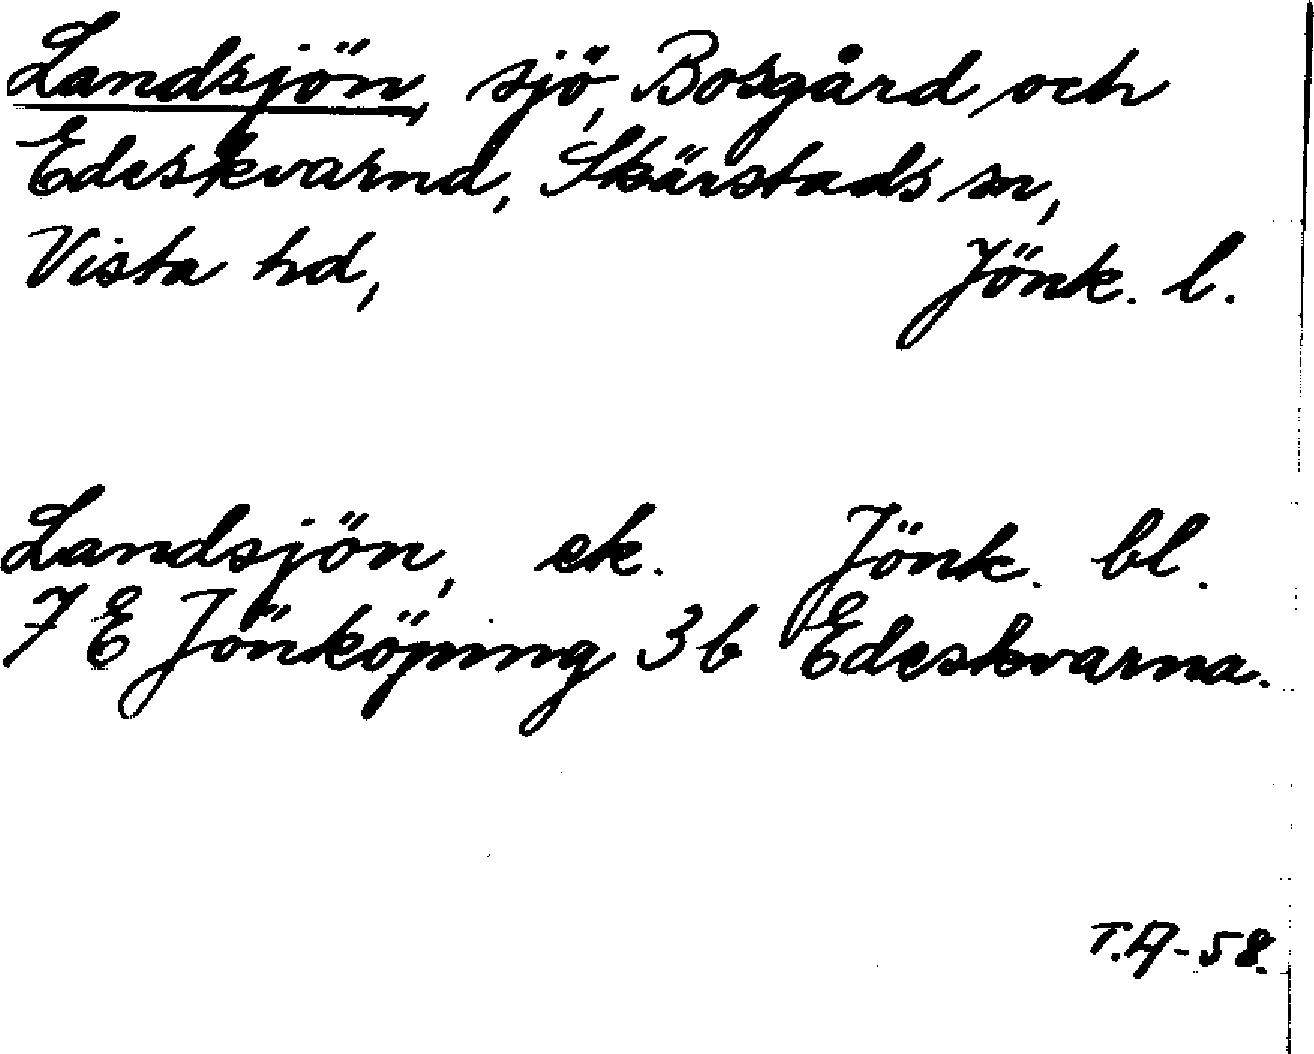 Landsjön, sjö, Bosgård och
Edeskvarnd, Skärstads sn,
Vista hd, Jönk. l.
Landsjön, ek. Jönk. bl.
7 E Jönköping 3b Edeskvarna.
T.A-58.